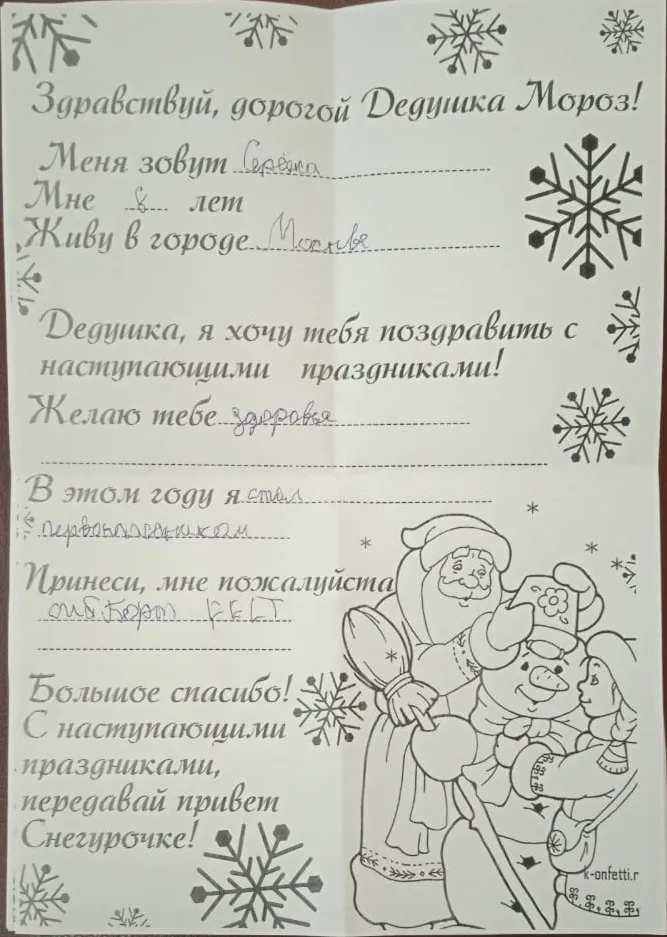 Здравствуй, дорогой Дедушка Мороз!
Меня зовут Серёжа
Мне 8 лет
Живу в городе Москве
Дедушка, я хочу тебя поздравить с
наступающими праздниками!
Желаю тебе здоровья
В этом году я стал
первоклассником
Принеси, мне пожалуйста
Большое спасибо!
С наступающими
праздниками,
передавай привет
Снегурочке!
k-onfetti.r